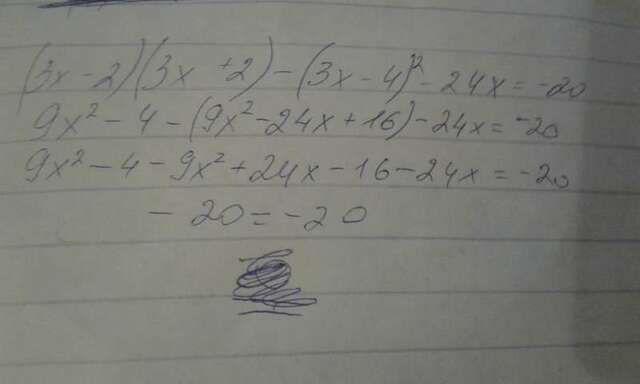 (3x - 2)(3x + 2) - (3x - 4)² - 24x = -20
9x² - 4 - (9x² - 24x + 16) - 24x = -20
9x² - 4 - 9x² + 24x - 16 - 24x = -20
- 20 = - 20